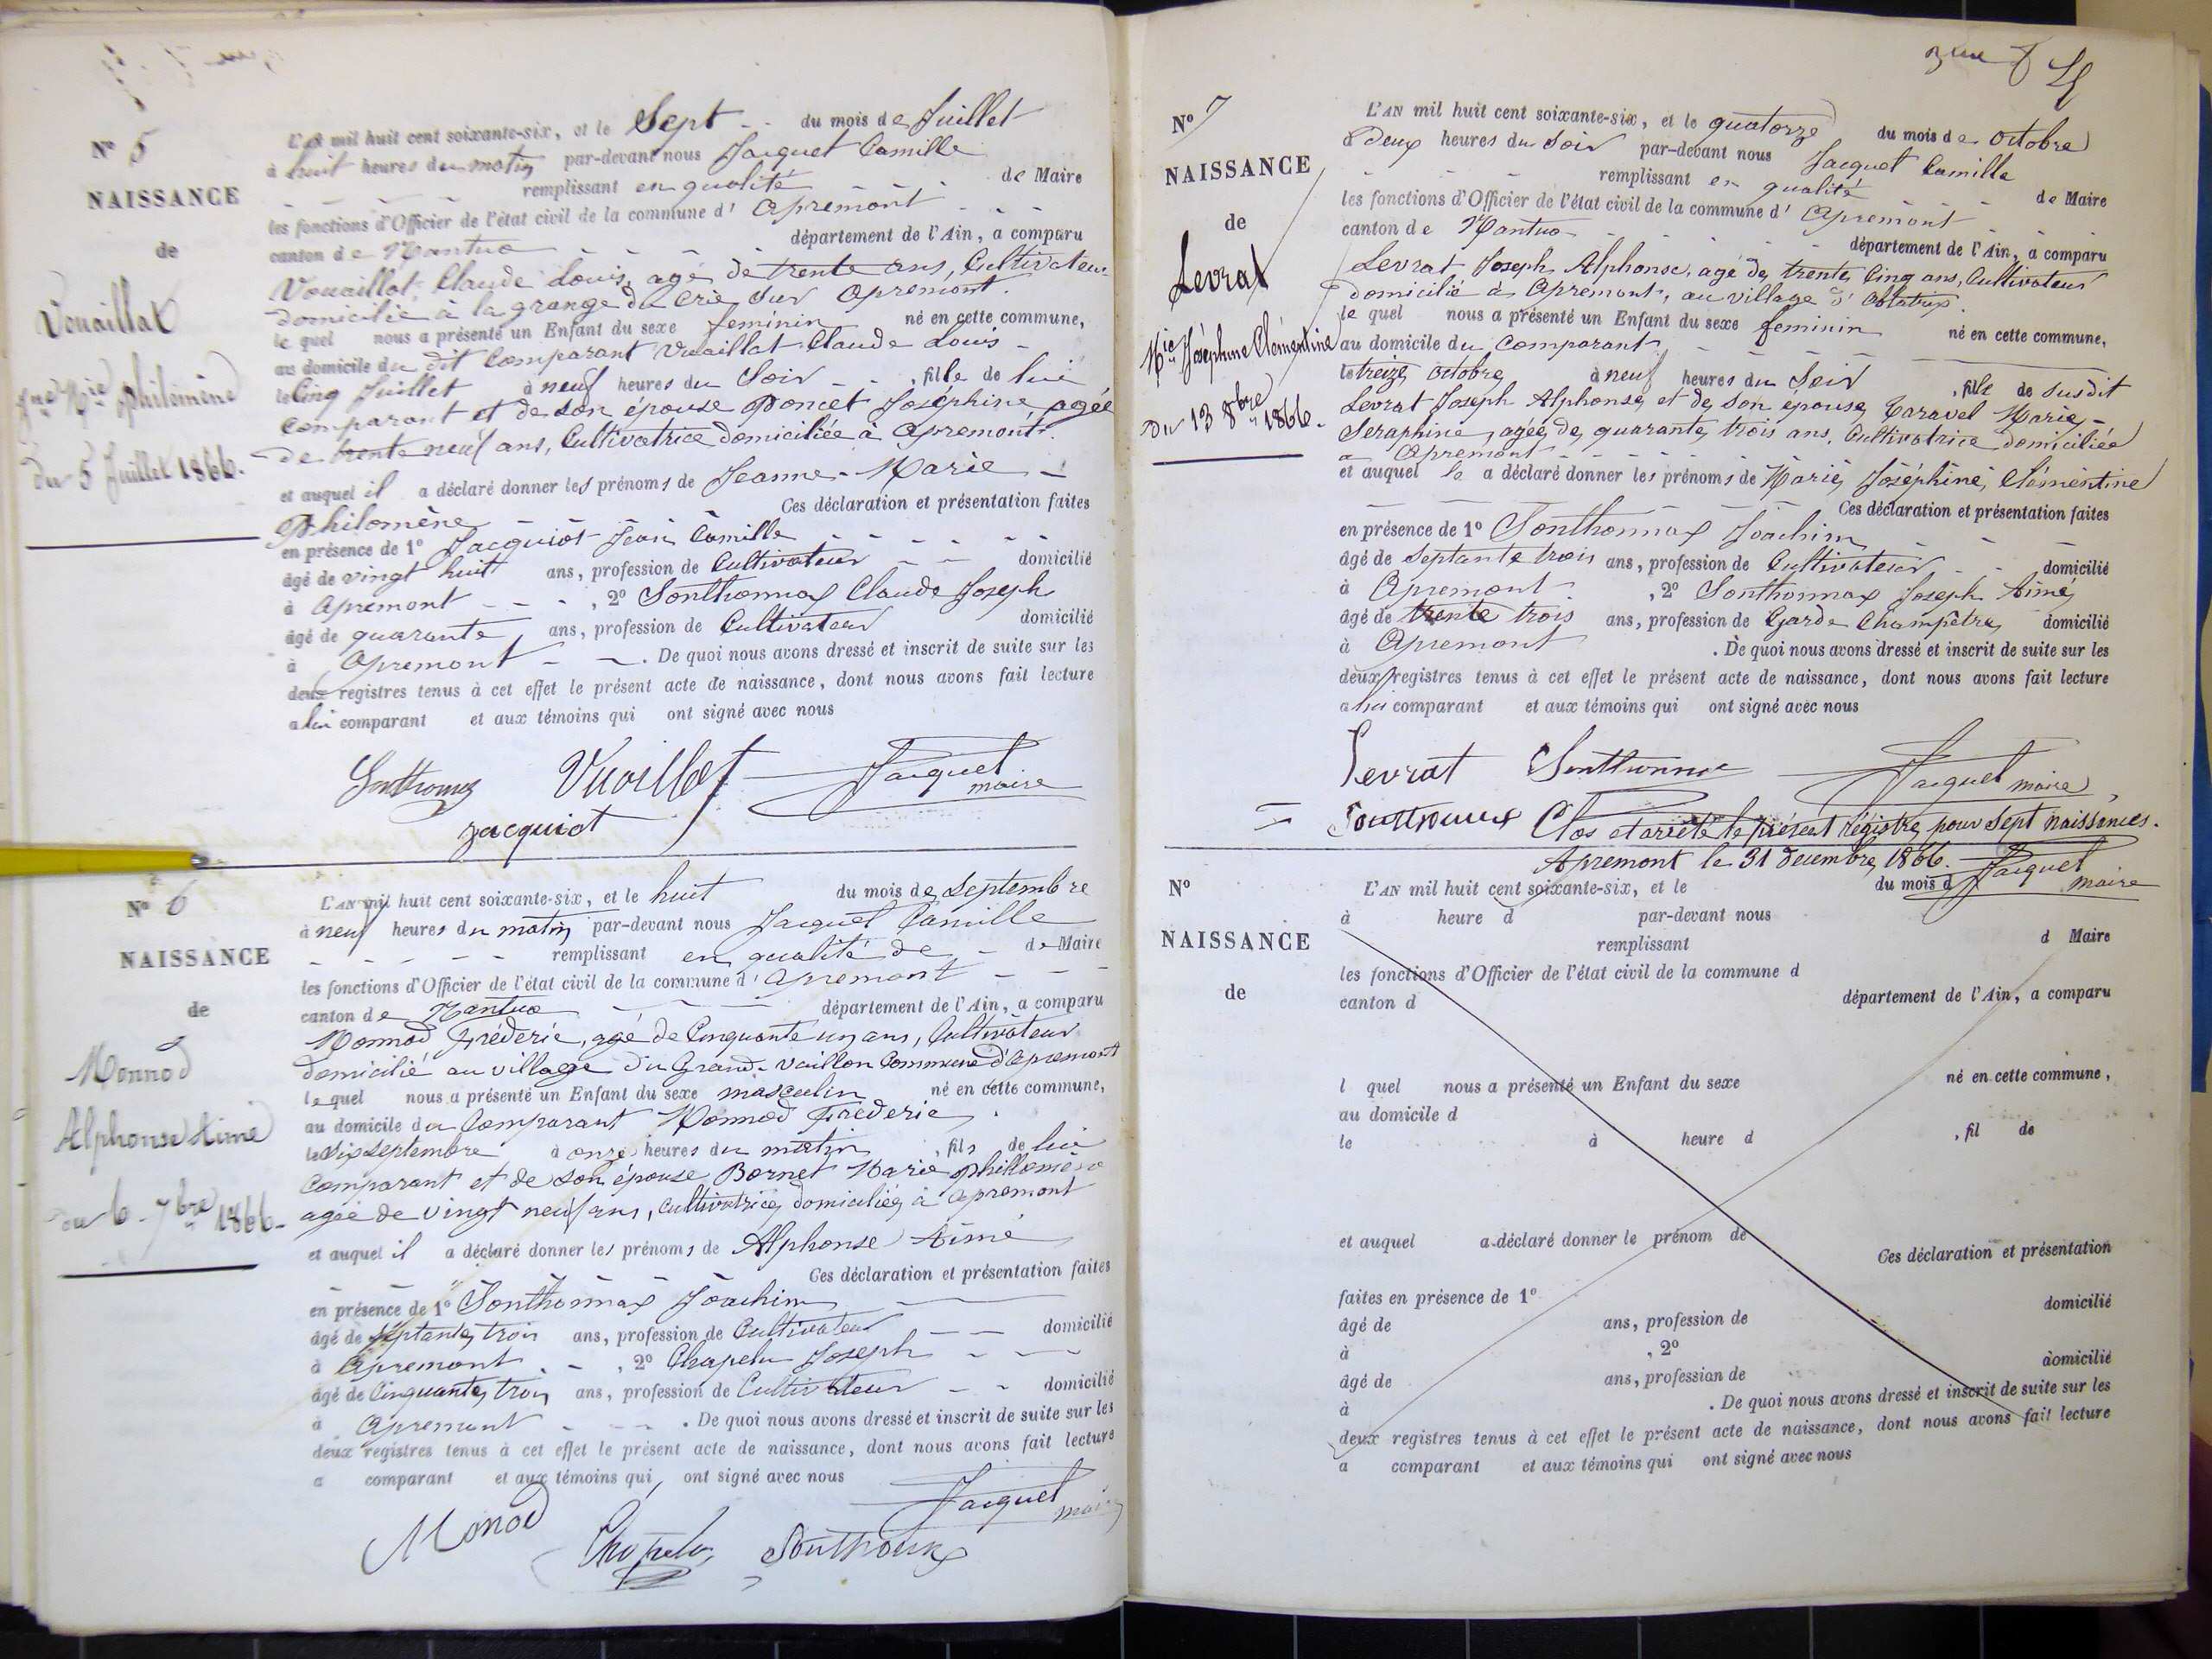 N° 5
NAISSANCE
de
Vouaillat
Jne Mie Philomène
du 5 Juillet 1866.
L'AN mil huit cent soixante-six, et le Sept du mois de Juillet
à huit heures du matin par-devant nous Jacquet Camille
remplissant en qualité de Maire
les fonctions d'Officier de l'état civil de la commune d' Apremont
canton de Nantua département de l'Ain, a comparu
Vouaillat, Claude Louis, agé de trente ans, Cultivateur
domicilié à la grange du Crie, sur Apremont.
le quel nous a présenté un Enfant du sexe feminin né en cette commune,
au domicile du dit Comparant Vuaillat Claude Louis
le Cinq Juillet à neuf heures du Soir, fille de lui
Comparant et de son épouse Poncet Joséphine agée
de trente neuf ans, Cultivatrice domiciliée à Apremont.
et auquel il a déclaré donner les prénoms de Jeanne-Marie
Philomène Ces déclaration et présentation faites
en présence de 1° Jacquiot Jean Camille
âgé de vingt huit ans, profession de Cultivateur domicilié
à Apremont, 2° Sonthonnax Claude Joseph
âgé de quarante ans, profession de Cultivateur domicilié
à Apremont. De quoi nous avons dressé et inscrit de suite sur les
deux registres tenus à cet effet le présent acte de naissance, dont nous avons fait lecture
a lui comparant et aux témoins qui ont signé avec nous
Vuaillat Jacquet
maire
Jacquiot
N° 6
NAISSANCE
de
Monnod
Alphonse Aimé
du 6 - 7bre 1866-
L'AN mil huit cent soixante-six, et le huit du mois de Septembre
à neuf heures du matin par-devant nous Jacquet Camille
remplissant en qualité de de Maire
les fonctions d'Officier de l'état civil de la commune d' Apremont
canton de Nantua département de l'Ain, a comparu
Monnod Fréderic, agé de Cinquante un ans, Cultivateur
domicilié au village du Grand-Vaillon Commune d'Apremont
le quel nous a présenté un Enfant du sexe masculin né en cette commune,
au domicile du Comparant Monnod Fréderic
le Six Septembre à onze heures du matin, fils de lui
Comparant et de son épouse Bornet Marie Philomène
agée de vingt neuf ans, Cultivatrice, domiciliée à Apremont
et auquel il a déclaré donner les prénoms de Alphonse Aimé
Ces déclaration et présentation faites
en présence de 1° Sonthonnax Joachim
âgé de Septante trois ans, profession de Cultivateur domicilié
à Apremont, 2° Chapelu Joseph
âgé de Cinquante trois ans, profession de Cultivateur domicilié
à Apremont. De quoi nous avons dressé et inscrit de suite sur les
deux registres tenus à cet effet le présent acte de naissance, dont nous avons fait lecture
a comparant et aux témoins qui ont signé avec nous
Jacquet
maire
Monod Chapelu
N° 7
NAISSANCE
de
Levrat
Mie Joséphine Clémentine
Du 13 8bre 1866.
L'AN mil huit cent soixante-six, et le quatorze du mois de Octobre
à deux heures du Soir par-devant nous Jacquet Camille
remplissant en qualité de Maire
les fonctions d'Officier de l'état civil de la commune d' Apremont
canton de Nantua département de l'Ain, a comparu
Levrat Joseph Alphonse, agé de trente Cinq ans, Cultivateur
domicilié à Apremont, au village d'
le quel nous a présenté un Enfant du sexe feminin né en cette commune,
au domicile du Comparant
le treize Octobre à neuf heures du Soir, fille de susdit
Levrat Joseph Alphonse et de son épouse Taravel Marie-
Seraphine, agée de quarante trois ans, Cultivatrice domiciliée
a Apremont
et auquel a déclaré donner les prénoms de Marie, Joséphine, Clémentine
Ces déclaration et présentation faites
en présence de 1° Sonthonnax Joachim
âgé de Septante trois ans, profession de Cultivateur domicilié
à Apremont, 2° Sonthonnax Joseph Aimé
âgé de trente trois ans, profession de Garde Champêtre domicilié
à Apremont. De quoi nous avons dressé et inscrit de suite sur les
deux registres tenus à cet effet le présent acte de naissance, dont nous avons fait lecture
a lui comparant et aux témoins qui ont signé avec nous
Levrat Sonthonnax Jacquet maire
Clos et arrêté le présent régistre pour Sept naissances.
Apremont le 31 décembre 1866. Jacquet
maire
N°
NAISSANCE
de
L'AN mil huit cent soixante-six, et le du mois d
à heure d par-devant nous
remplissant d Maire
les fonctions d'Officier de l'état civil de la commune d
canton d département de l'Ain, a comparu
l quel nous a présenté un Enfant du sexe né en cette commune,
au domicile d
le à heure d , fil de
et auquel a déclaré donner le prénom de
Ces déclaration et présentation
faites en présence de 1°
âgé de ans, profession de domicilié
à , 2°
âgé de ans, profession de domicilié
à . De quoi nous avons dressé et inscrit de suite sur les
deux registres tenus à cet effet le présent acte de naissance, dont nous avons fait lecture
a comparant et aux témoins qui ont signé avec nous